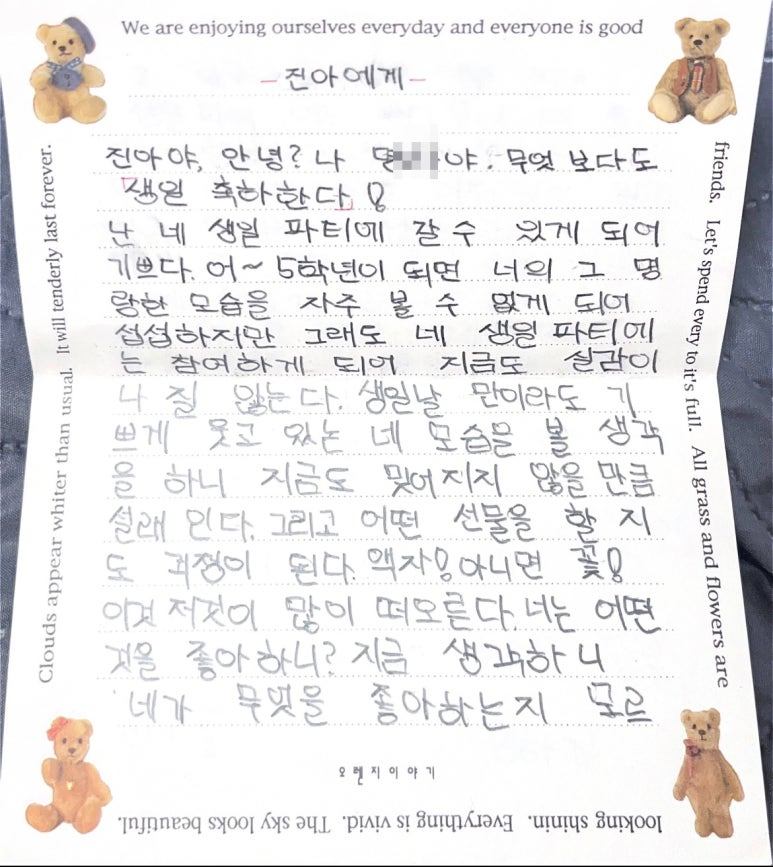 We are enjoying ourselves everyday and everyone is good
friends. Let's spend every to it's full. All grass and flowers are
looking shinin. Everything is vivid. The sky looks beautiful.
Clouds appear whiter than usual. It will tenderly last forever.
-진아에게-
진아야, 안녕? 나 명 야. 무엇 보다도
『생일 축하한다.』!
난 네 생일 파티에 갈 수 있게 되어
기쁘다. 어~ 5학년이 되면 너의 그 명
랑한 모습을 자주 볼 수 없게 되어
섭섭하지만 그래도 네 생일 파티에
는 참여하게 되어 지금도 실감이
나 질 않는다. 생일날 만이라도 기
쁘게 웃고 있는 네 모습을 볼 생각
을 하니 지금도 믿어지지 않을 만큼
설래인다. 그리고 어떤 선물을 할 지
도 걱정이 된다. 액자! 아니면 꽃!
이것 저것이 많이 떠오른다. 너는 어떤
것을 좋아하니? 지금 생각하니
네가 무엇을 좋아하는지 모르
오렌지이야기